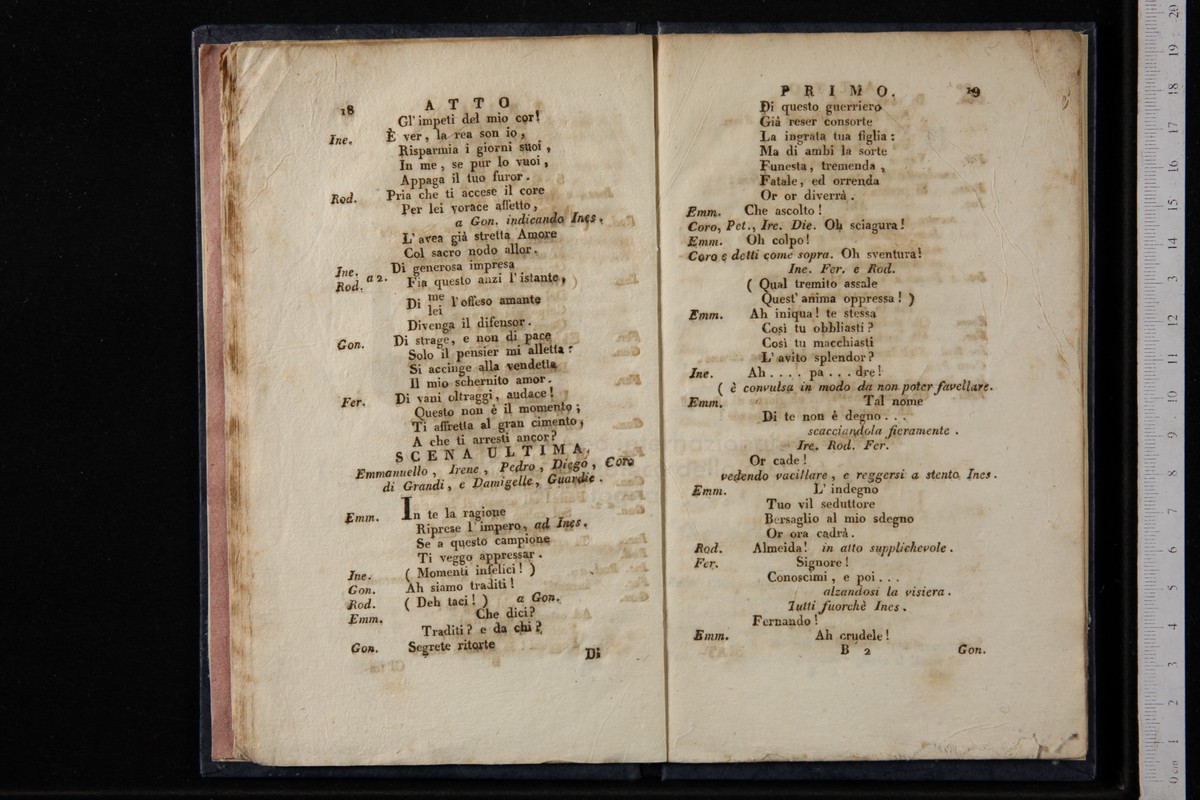 18
A T T O
Gl' impeti del mio cor!
Ine. È ver, la rea son io,
Risparmia i giorni suoi,
In me, se pur lo vuoi,
Appaga il tuo furor.
Rod. Pria che ti accese il core
Per lei vorace affetto,
a Gon. indicando Ines.
L' avea già stretta Amore
Col sacro nodo allor.
Ine. Rod. a 2. Di generosa impresa
Fia questo anzi l' istante,
Di me l' offeso amante
lei
Divenga il difensor.
Gon. Di strage, e non di pace
Solo il pensier mi alletta:
Si accinge alla vendetta
Il mio schernito amor.
Fer. Di vani oltraggi, audace!
Questo non è il momento;
Ti affretta al gran cimento,
A che ti arresti ancor?
S C E N A U L T I M A.
Emmanuello, Irene, Pedro, Diego, Coro
di Grandi, e Damigelle, Guardie.
Emm. In te la ragione
Riprese l' impero, ad Ines.
Se a questo campione
Ti veggo appressar.
Ine. ( Momenti infelici! )
Gon. Ah siamo traditi!
Rod. ( Deh taci! ) a Gon.
Emm. Che dici?
Traditi? e da chi?
Gon. Segrete ritorte
Di
P R I M O.
19
Di questo guerriero
Già reser consorte
La ingrata tua figlia:
Ma di ambi la sorte
Funesta, tremenda,
Fatale, ed orrenda
Or or diverrà.
Emm. Che ascolto!
Coro, Pet., Ire. Die. Oh sciagura!
Emm. Oh colpo!
Coro e detti come sopra. Oh sventura!
Ine. Fer. e Rod.
( Qual tremito assale
Quest' anima oppressa! )
Emm. Ah iniqua! te stessa
Così tu obbliasti?
Così tu macchiasti
L' avito splendor?
Ine. Ah . . . . pa . . . dre!
( è convulsa in modo da non poter favellare.
Emm. Tal nome
Di te non è degno . . .
scacciandola fieramente.
Ire. Rod. Fer.
Or cade!
vedendo vacillare, e reggersi a stento Ines.
Emm. L' indegno
Tuo vil seduttore
Bersaglio al mio sdegno
Or ora cadrà.
Rod. Almeida! in atto supplichevole.
Fer. Signore!
Conoscimi, e poi . . .
alzandosi la visiera.
Tutti fuorchè Ines.
Fernando!
Emm. Ah crudele!
B 2
Gon.